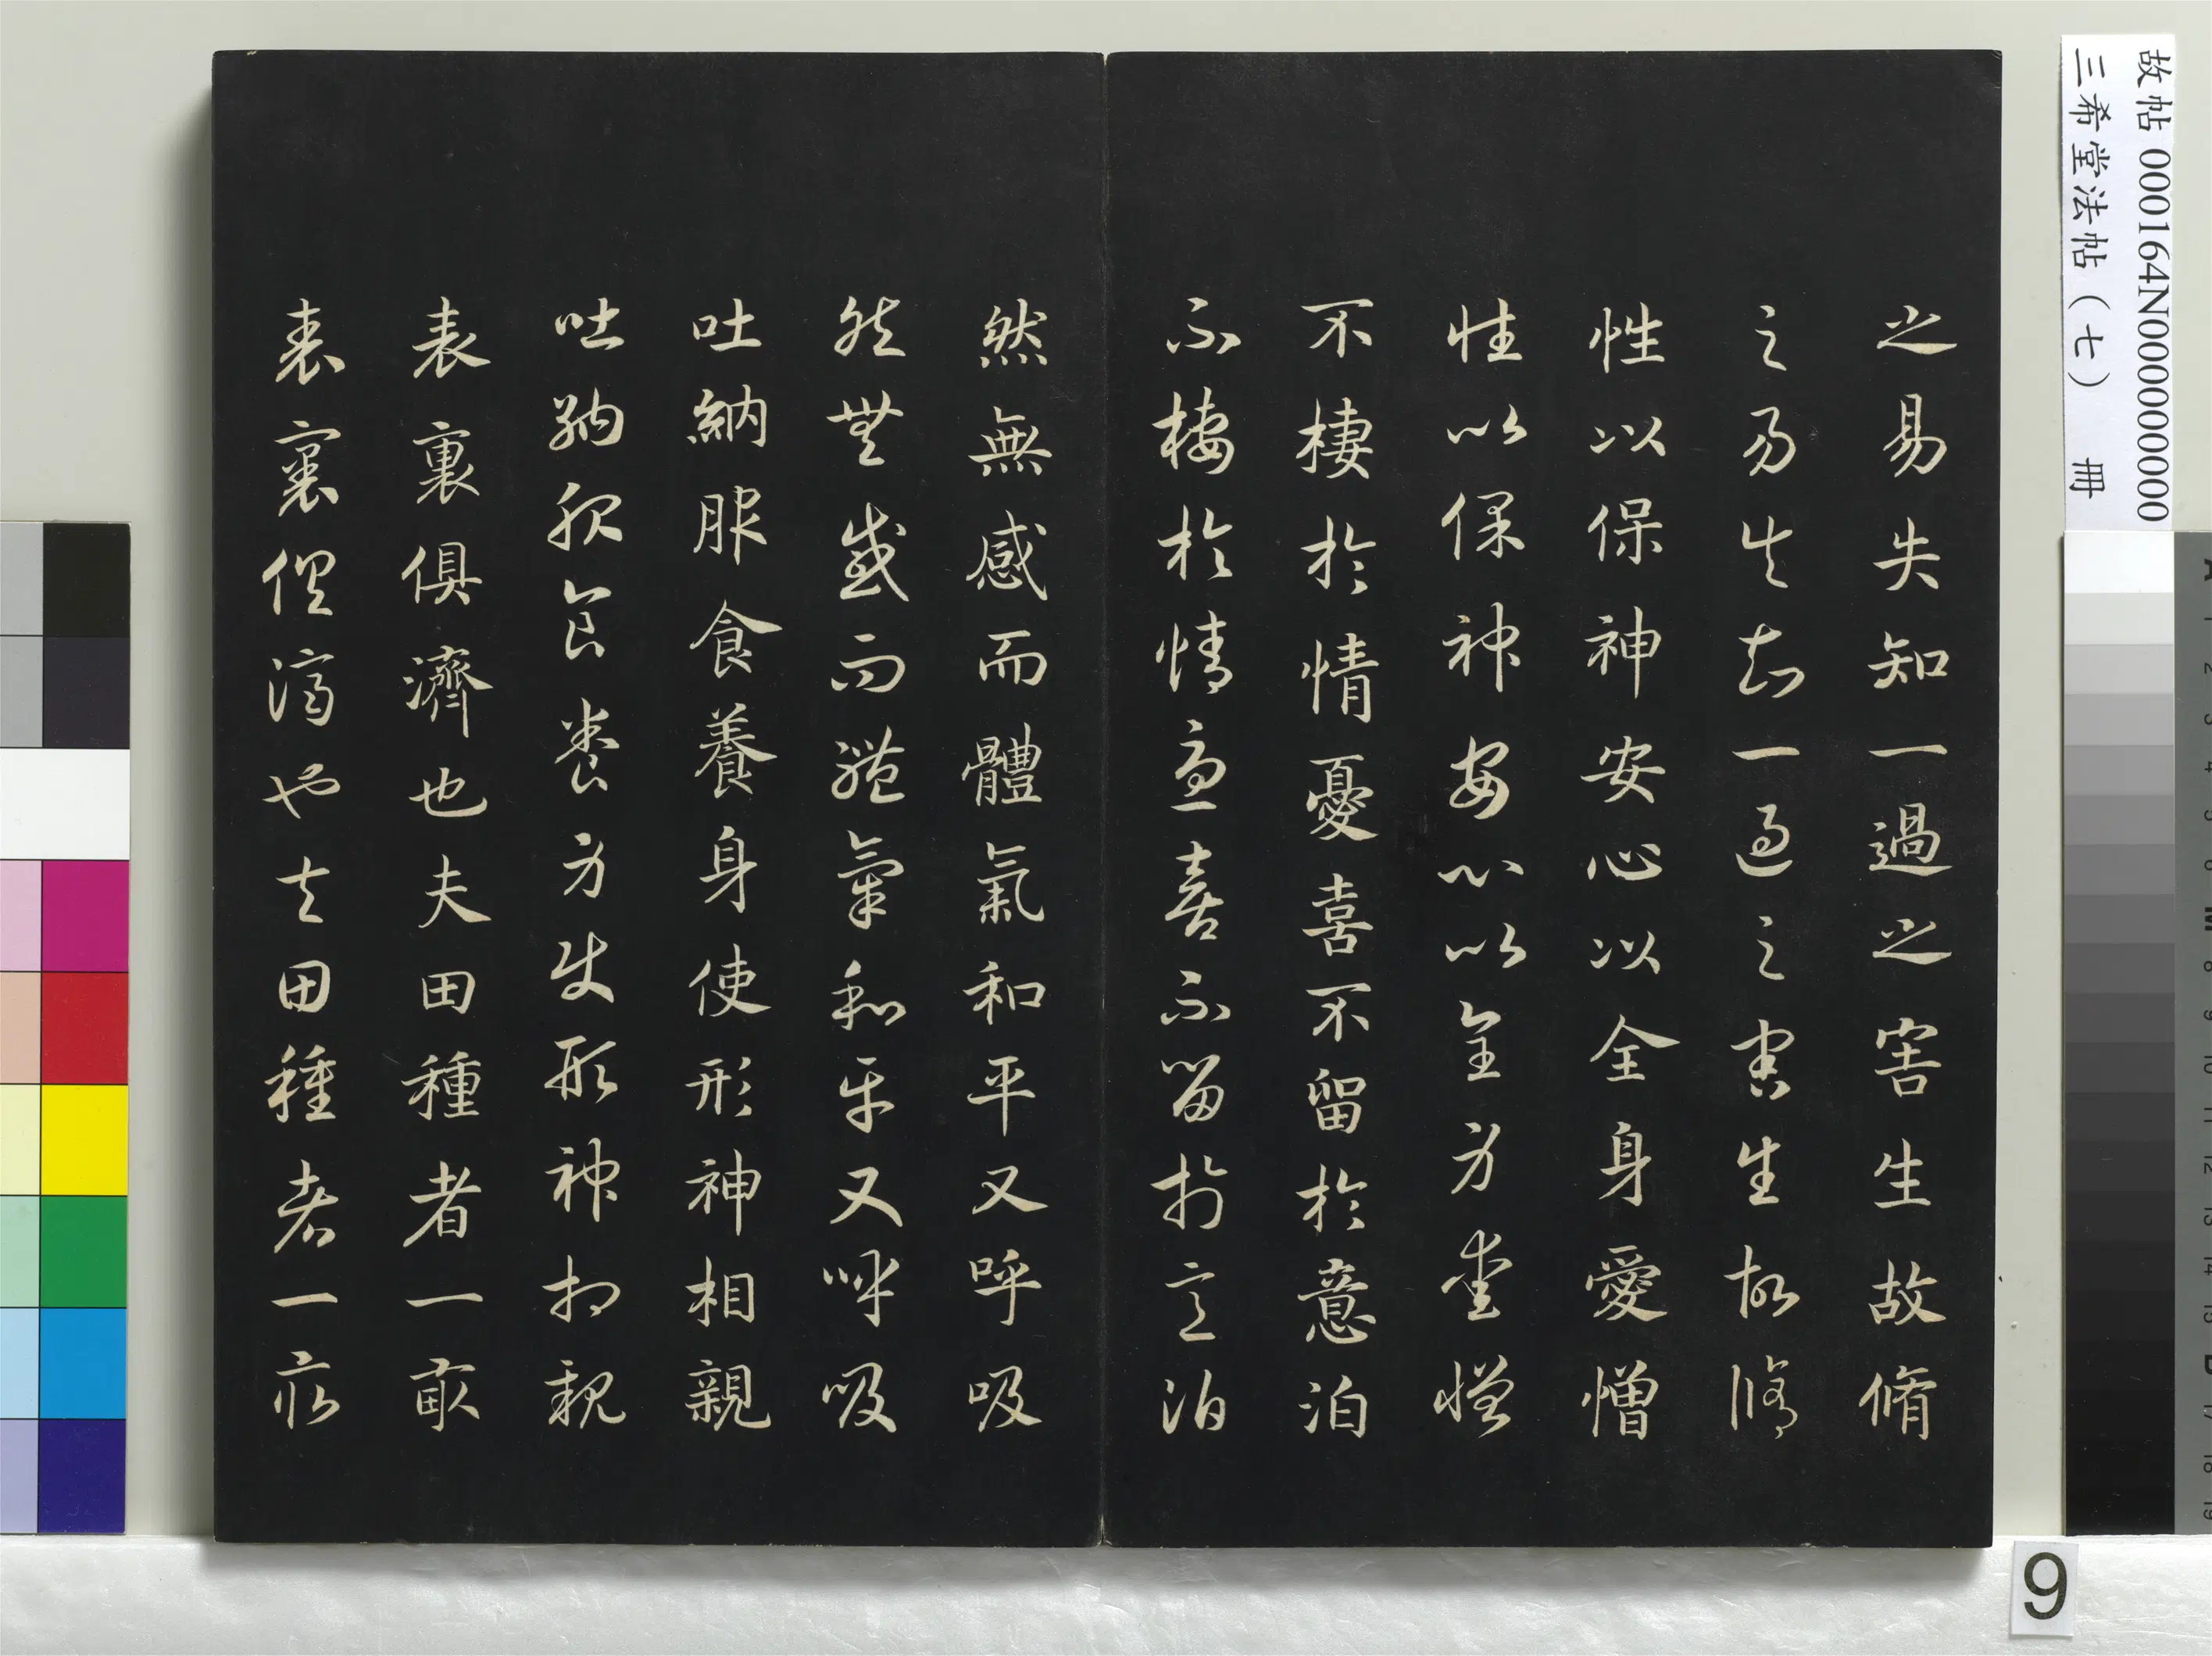 故帖 000164N000000000
三希堂法帖（七） 冊
之易失知一過之害生故脩
之易失知一過之害生故脩
性以保神安心以全身愛憎
性以保神安心以全身愛憎
不棲於情憂喜不留於意泊
不棲於情憂喜不留於意泊
然無感而體氣和平又呼吸
然無感而體氣和平又呼吸
吐納服食養身使形神相親
吐納服食養身使形神相親
表裏俱濟也夫田種者一畝
表裏俱濟也夫田種者一畝
9